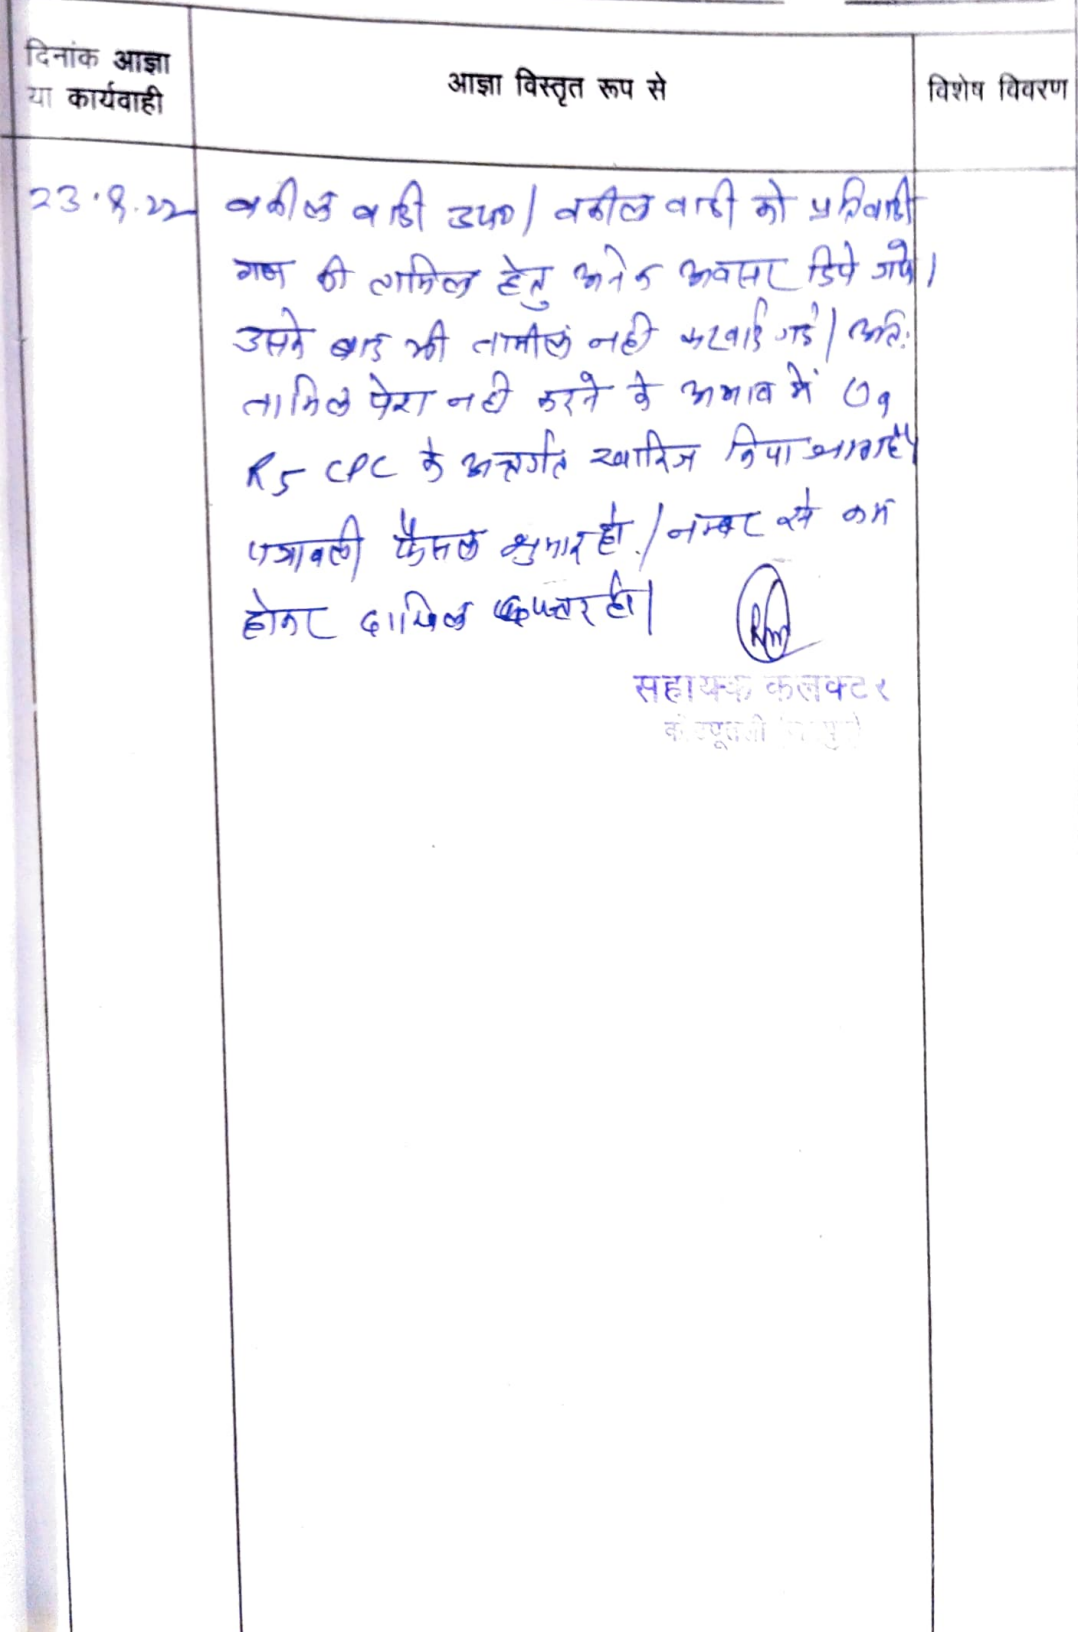 दिनांक आज्ञा
या कार्यवाही
आज्ञा विस्तृत रूप से
विशेष विवरण
23.8.22
वकील वादी उप0 / वकील वादी को प्रतिवादी
गण की तामिल हेतु अनेक अवसर दिये गये।
उसके बाद भी तामील नही करवाई गई / अतः
तामिल पेश नही करने के अभाव में O9
R5 CPC के अन्तर्गत खारिज किया जाता है।
पत्रावली फैसल शुमार हो। / नम्बर से कम
होकर दाखिल दफ्तर हो।
सहायक कलक्टर
कोटपूतली